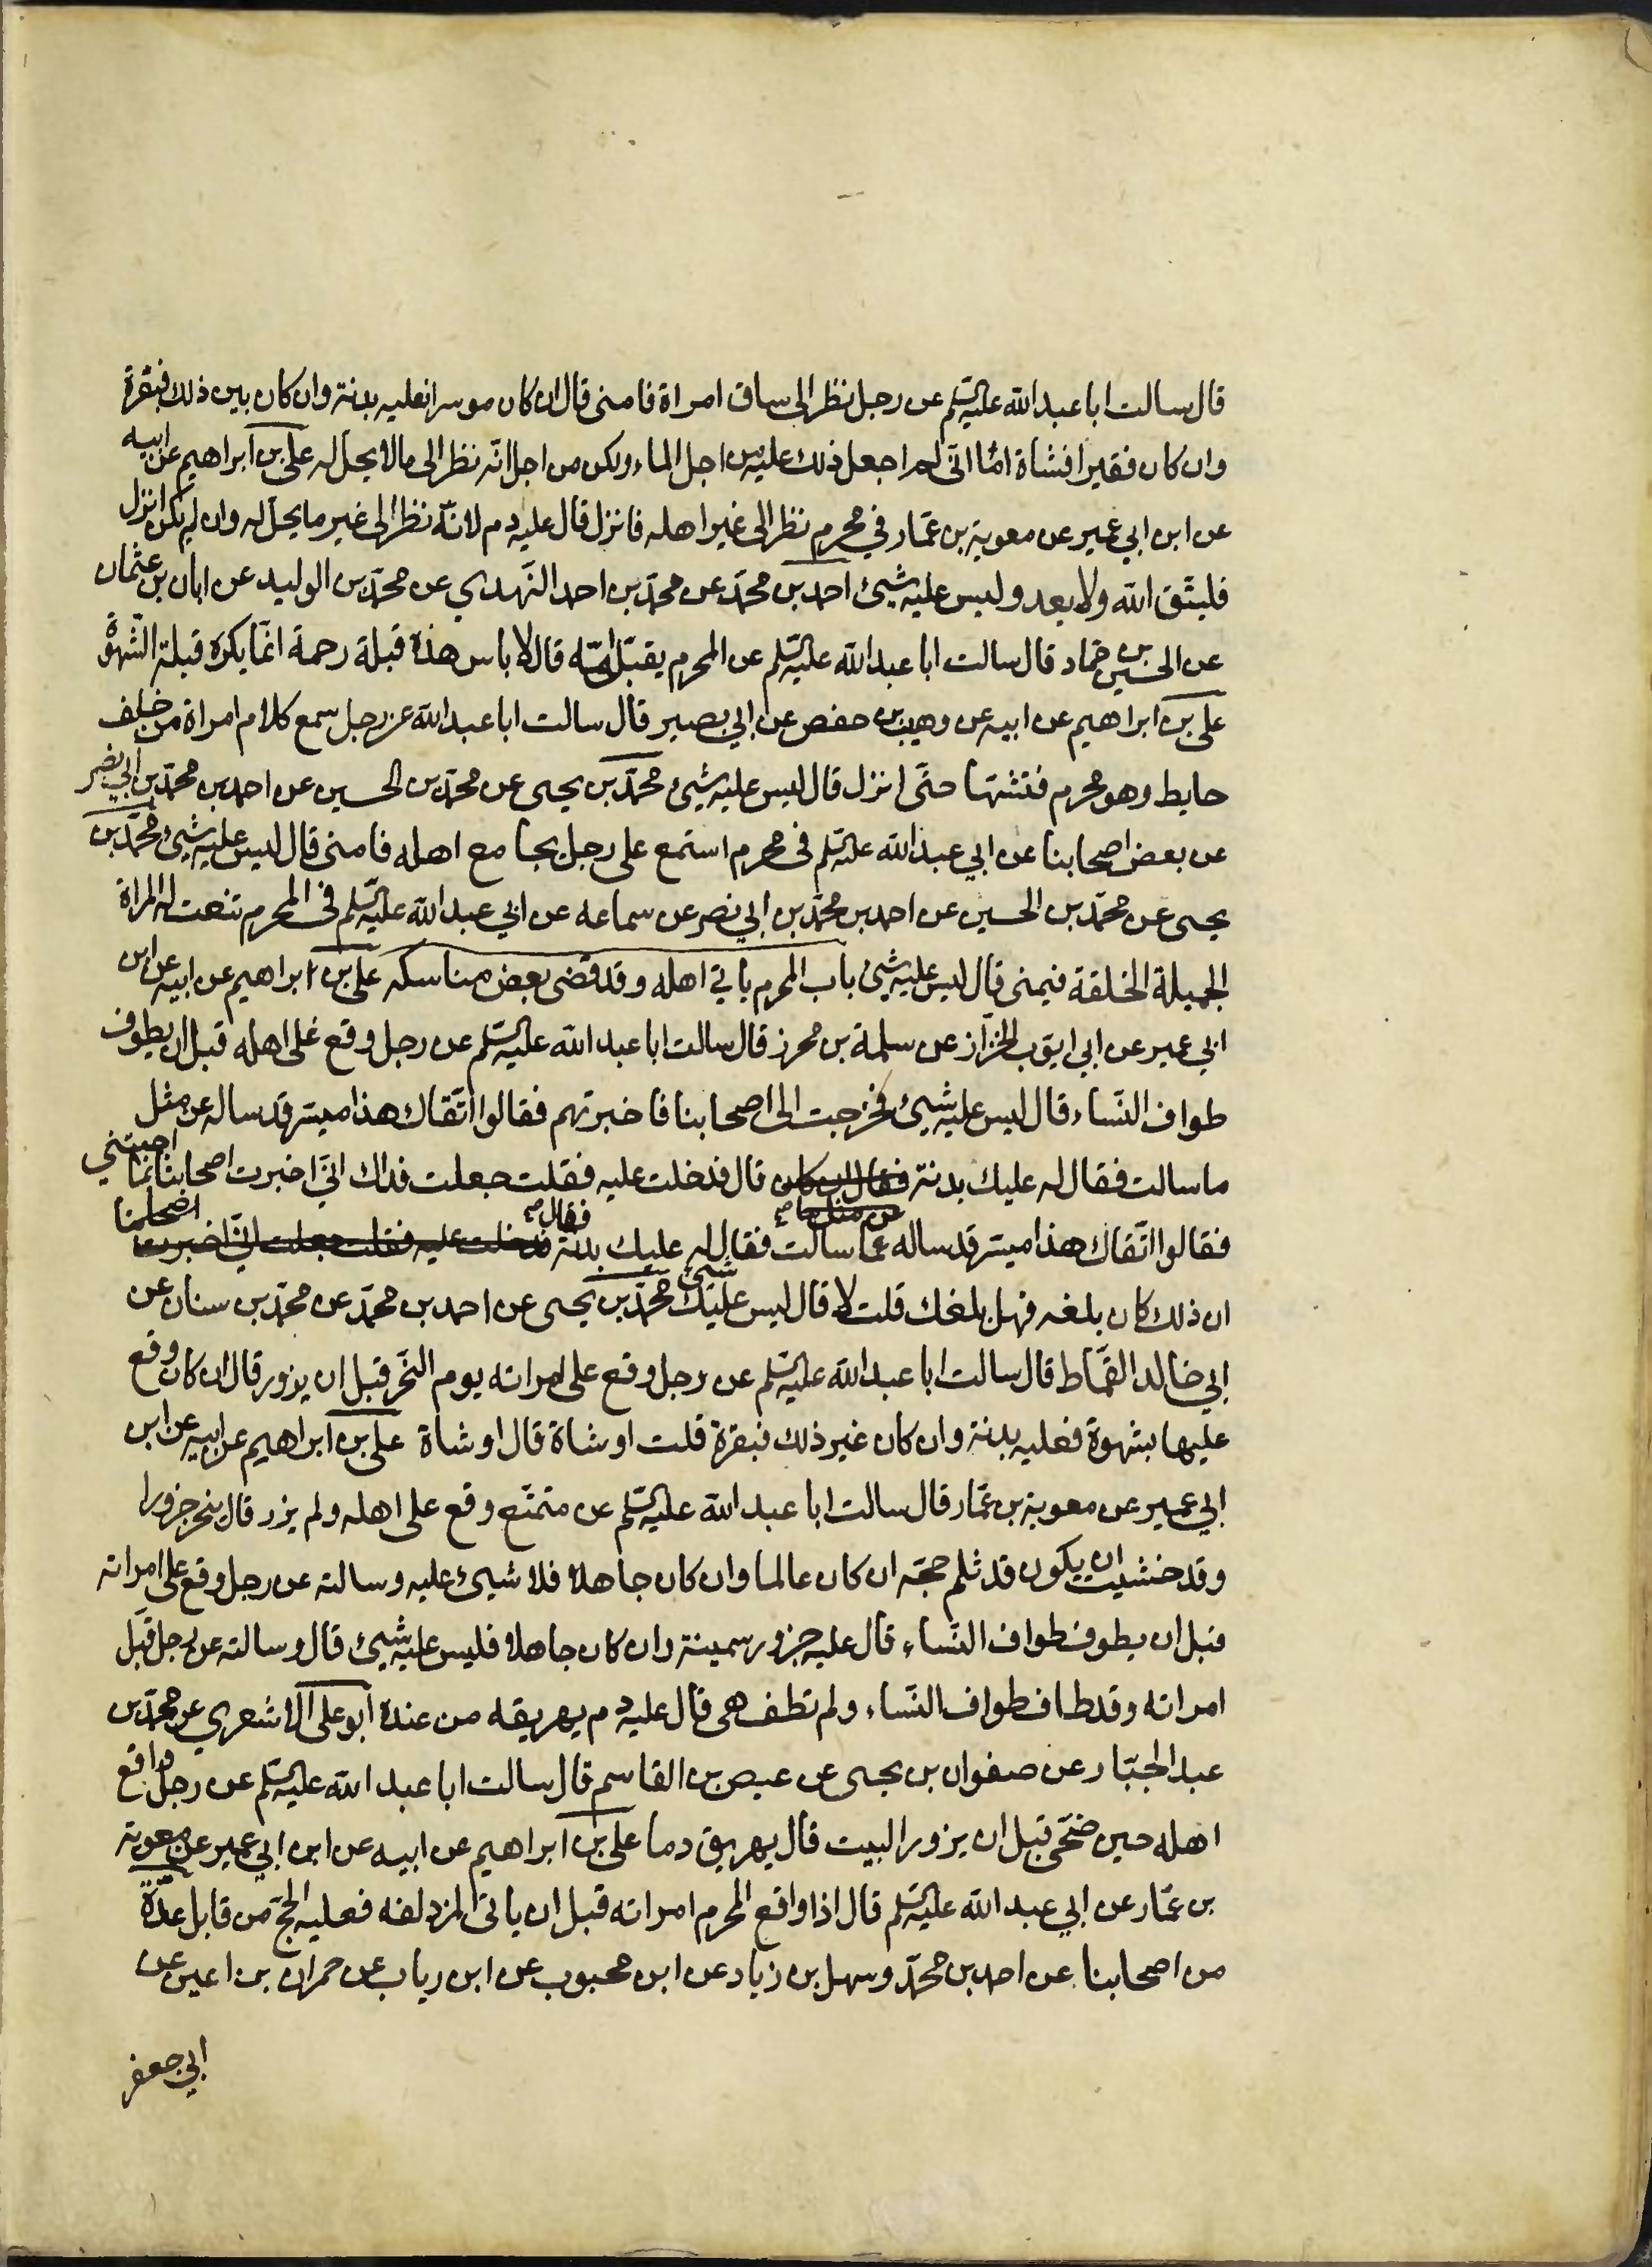 قال سالت ابا عبد الله عليه السلم عن رجل نظر الى ساق امراة فامنى قال ان كان موسرا فعليه بدنة وان كان بين ذلك فبقرة
وان كان فقيرا فشاة امّا انّى لم اجعل ذلك عليه من اجل الماء ولكن من اجل انّه نظر الى مالا يحلّ له على بن ابراهيم عن ابيه
عن ابن ابي عمير عن معوية بن عمّار في محرم نظر الى غير اهله فانزل قال عليه دم لانّه نظر الى غير ما يحلّ له وان لم يكن انزل
فليتّق الله ولا يعد وليس عليه شيئ احمد بن محمّد عن محمّد بن احمد النّهدي عن محمّد بن الوليد عن ابان بن عثمان
عن الحسين بن حمّاد قال سالت ابا عبد الله عليه السلم عن المحرم يقبّل امّه قال لا باس هذه قبلة رحمة انّما يكره قبلة الشّهوة
على بن ابراهيم عن ابيه عن وهيب بن حفص عن ابي بصير قال سالت ابا عبد الله عن رجل سمع كلام امراة من خلف
حايط وهو محرم فتشهّا حتّى انزل قال ليس عليه شيئ محمّد بن يحيى عن محمّد بن الحسين عن احمد بن محمّد بن ابي نصر
عن بعض اصحابنا عن ابي عبد الله عليه السلم فى محرم استمع على رجل يجامع اهله فامنى قال ليس عليه شيئ محمّد بن
يحيى عن محمّد بن الحسين عن احمد بن محمّد بن ابي نصر عن سماعه عن ابي عبد الله عليه السلم فى المحرم تنعت له المراة
الجميلة الخلقة فيمنى قال ليس عليه شيئ باب المحرم ياتي اهله وقد قضى بعض مناسكه على بن ابراهيم عن ابيه عن ابن
ابي عمير عن ابي ايّوب الخزّاز عن سلمة بن محرز قال سالت ابا عبد الله عليه السلم عن رجل وقع على اهله قبل ان يطوف
طواف النّساء قال ليس عليه شيئ فخرجت الى اصحابنا فاخبرتهم فقالوا اتّقاك هذا ميسر قد ساله عن مثل
ما سالت فقال له عليك بدنة قال فدخلت عليه فقلت جعلت فداك انّي اخبرت اصحابنا بما اجبتني
فقالوا اتّقاك هذا ميسر قد ساله عمّا سالت فقال له عليك بدنة فقال
ان ذلك كان بلغه فهل بلغك قلت لا قال ليس عليك شيئ محمّد بن يحيى عن احمد بن محمّد عن محمّد بن سنان عن
ابي خالد القمّاط قال سالت ابا عبد الله عليه السلم عن رجل وقع على امراته يوم النّحر قبل ان يزور قال ان كان وقع
عليها بشهوة فعليه بدنة وان كان غير ذلك فبقرة قلت او شاة قال او شاة على بن ابراهيم عن ابيه عن ابن
ابي عمير عن معوية بن عمّار قال سالت ابا عبد الله عليه السلم عن متمتّع وقع على اهله ولم يزر قال ينحر جزورا
وقد خشيت ان يكون قد ثلم حجّه ان كان عالما وان كان جاهلا فلا شيئ عليه وسالته عن رجل وقع على امراته
قبل ان يطوف طواف النّساء قال عليه جزور سمينة وان كان جاهلا فليس عليه شيئ قال وسالته عن رجل قبّل
امراته وقد طاف طواف النّساء ولم تطف هى قال عليه دم يهريقه من عنده ابو على الاشعري عن محمّد بن
عبد الجبّار عن صفوان بن يحيى عن عيص بن القاسم قال سالت ابا عبد الله عليه السلم عن رجل واقع
اهله حين ضحّى قبل ان يزور البيت قال يهريق دما على بن ابراهيم عن ابيه عن ابن ابي عمير عن معوية
بن عمّار عن ابي عبد الله عليه السلم قال اذا واقع المحرم امراته قبل ان ياتى المزدلفه فعليه الحجّ من قابل عدّة
من اصحابنا عن احمد بن محمّد وسهل بن زياد عن ابن محبوب عن ابن رياب عن حمران بن اعين عن
ابي جعفر